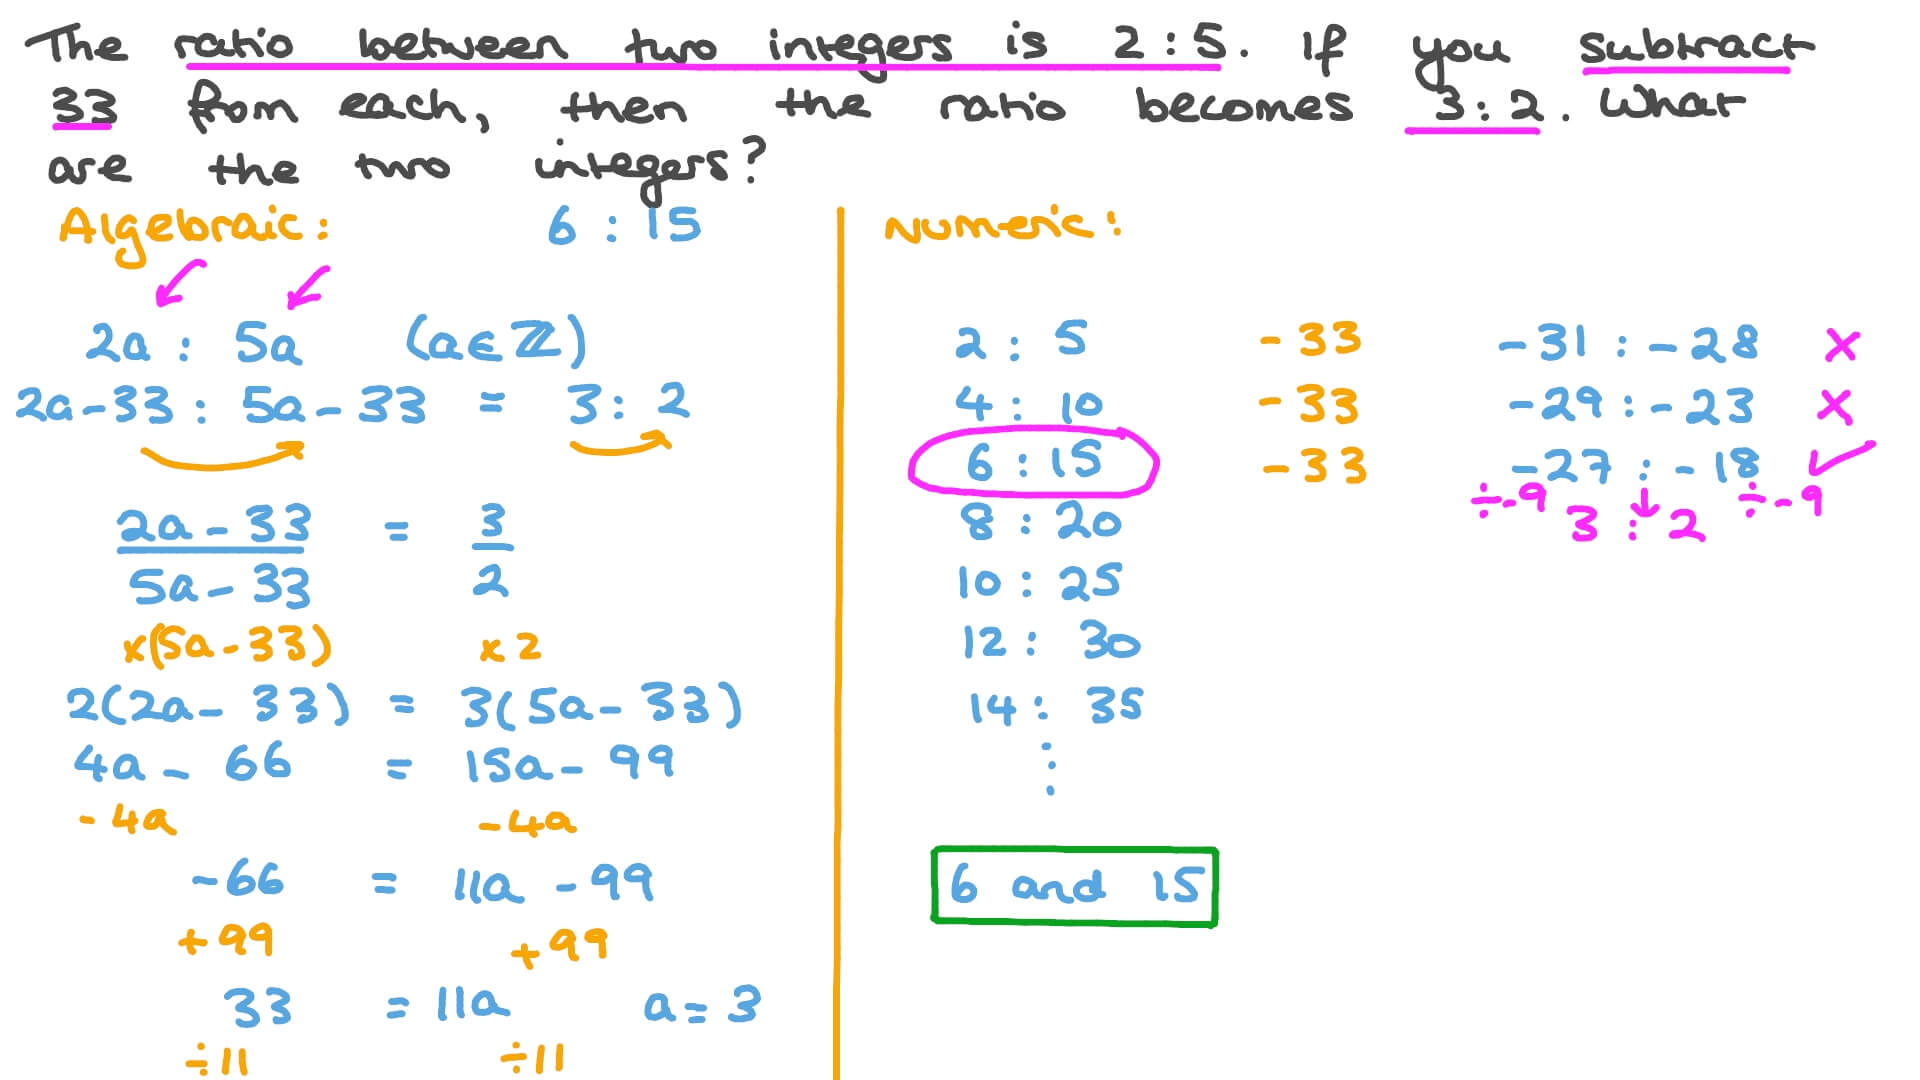 The ratio between two integers is 2:5. If you subtract
33 from each, then the ratio becomes 3:2. What
are the two integers?
Algebraic:
6 : 15
2a : 5a (a∈ℤ)
2a-33 : 5a-33 = 3:2
2a-33 / 5a-33 = 3/2
x(5a-33) x2
2(2a-33) = 3(5a-33)
4a-66 = 15a-99
-4a -4a
-66 = 11a-99
+99 +99
33 = 11a a=3
÷11 ÷11
Numeric:
2 : 5 -33 -31 : -28 ×
4 : 10 -33 -29 : -23 ×
6 : 15 -33 -27 : -18 ✓
÷-9 3 : 2 ÷-9
8 : 20
10 : 25
12 : 30
14 : 35
⋮
6 and 15